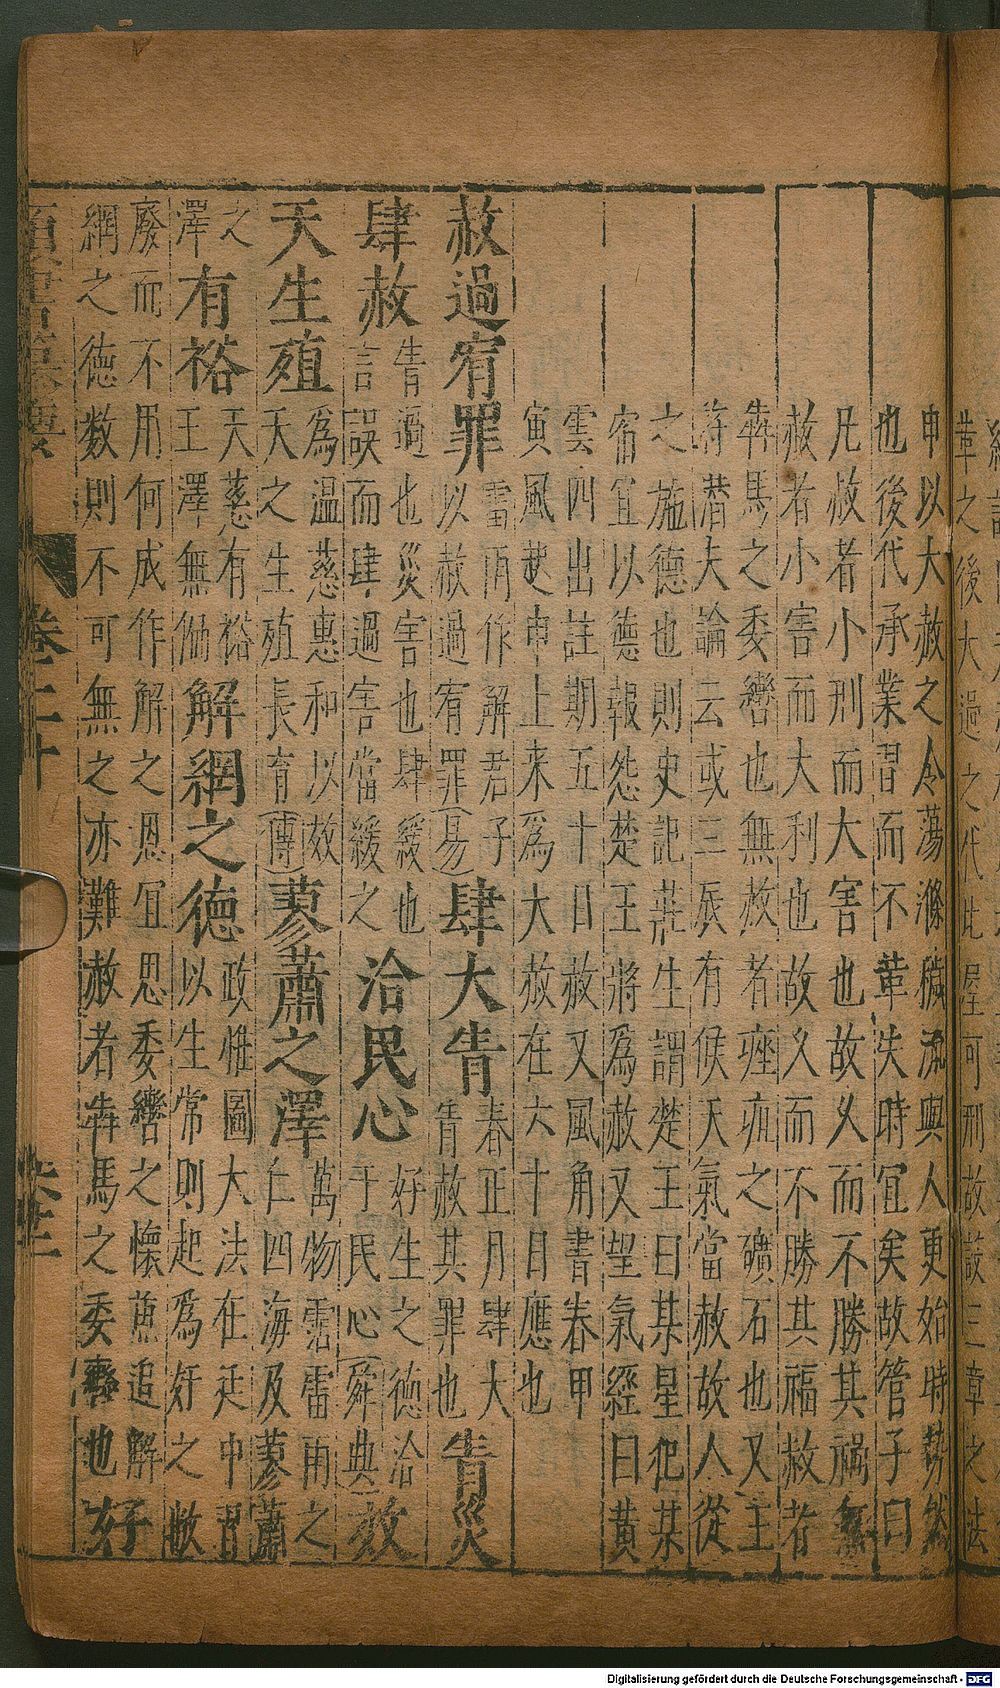 申以大赦之令蕩滌穢流與人更始時勢然
也後代承業習而不革失時宜矣故管子曰
凡赦者小利而大害也故久而不勝其禍無
赦者小害而大利也故久而不勝其福赦者
犇馬之委轡也無赦者痤疽之礦石也又王
符潜夫論云或三辰有候天氣當赦故人從
之施德也則史記莊生謂楚王曰某星犯某
宿宜以德報怨楚王將爲赦又望氣經曰黃
雲四出註期五十日赦又風角書春甲
寅風起申上来爲大赦在六十日應也
赦過宥罪雷雨作解君子以赦過宥罪易肆大眚春正月肆大眚赦其罪也眚災
肆赦眚過也災害也肆緩也言誤而肆過害當緩之洽民心好生之德洽于民心舜典效
天生殖爲温慈惠和以效天之生殖長育傳蓼蕭之澤萬物霑雷雨之仁四海及蓼蕭
之澤有裕天慈有裕王澤無偏解網之德政惟圖大法在廷中習以生常則起爲奸之敝
廢而不用何成作解之恩宜思委轡之懷追解網之德数則不可無之亦難赦者犇馬之委轡也好
類書纂要 卷二十